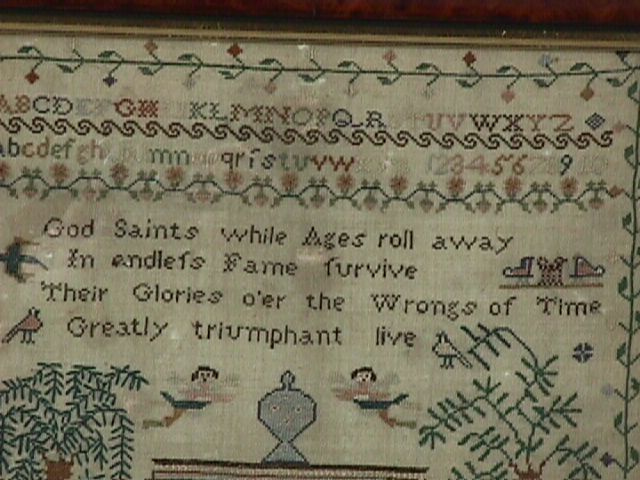 ABCD GH KLMNOPQR UVWXYZ
abcdefgh mn qrſstuvw 123456 9 10
God Saints while Ages roll away
In endleſs Fame ſurvive
Their Glories o'er the Wrongs of Time
Greatly triumphant live